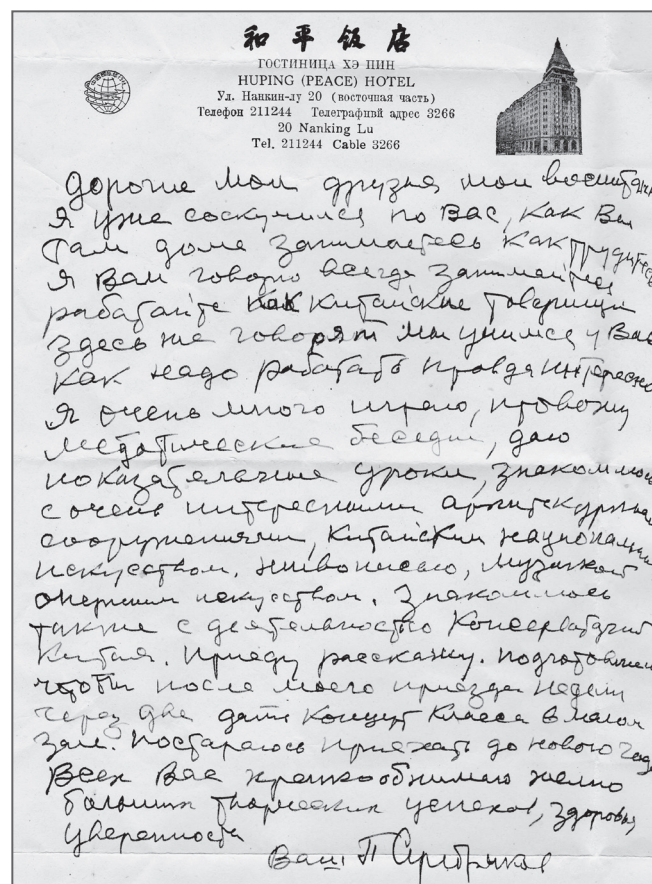 和平饭店
ГОСТИНИЦА ХЭ ПИН
HUPING (PEACE) HOTEL
Ул. Нанкин-лу 20 (восточная часть)
Телефон 211244 Телеграфный адрес 3266
20 Nanking Lu
Tel. 211244 Cable 3266
Дорогие мои друзья мои
я уже соскучился по Вас, как Вы
там дома занимаетесь как трудитесь
я Вам говорю всегда занимайтесь
работайте как китайские товарищи
здесь же говорят мы учимся у Вас
как надо работать правда интересно
я очень много играю, провожу
беседы, даю
показательные уроки, знакомлюсь
с очень интересными
сооружениями, китайским
искусством, живописью, музыкой
оперным искусством. Знакомлюсь
также с деятельностью
Китая. Приеду расскажу.
чтобы после моего приезда недели
через две дать концерт класса в малом
зале. Постараюсь приехать до нового года
Всех Вас крепко обнимаю желаю
больших творческих успехов, здоровья
уверенности
Ваш П Серебряков